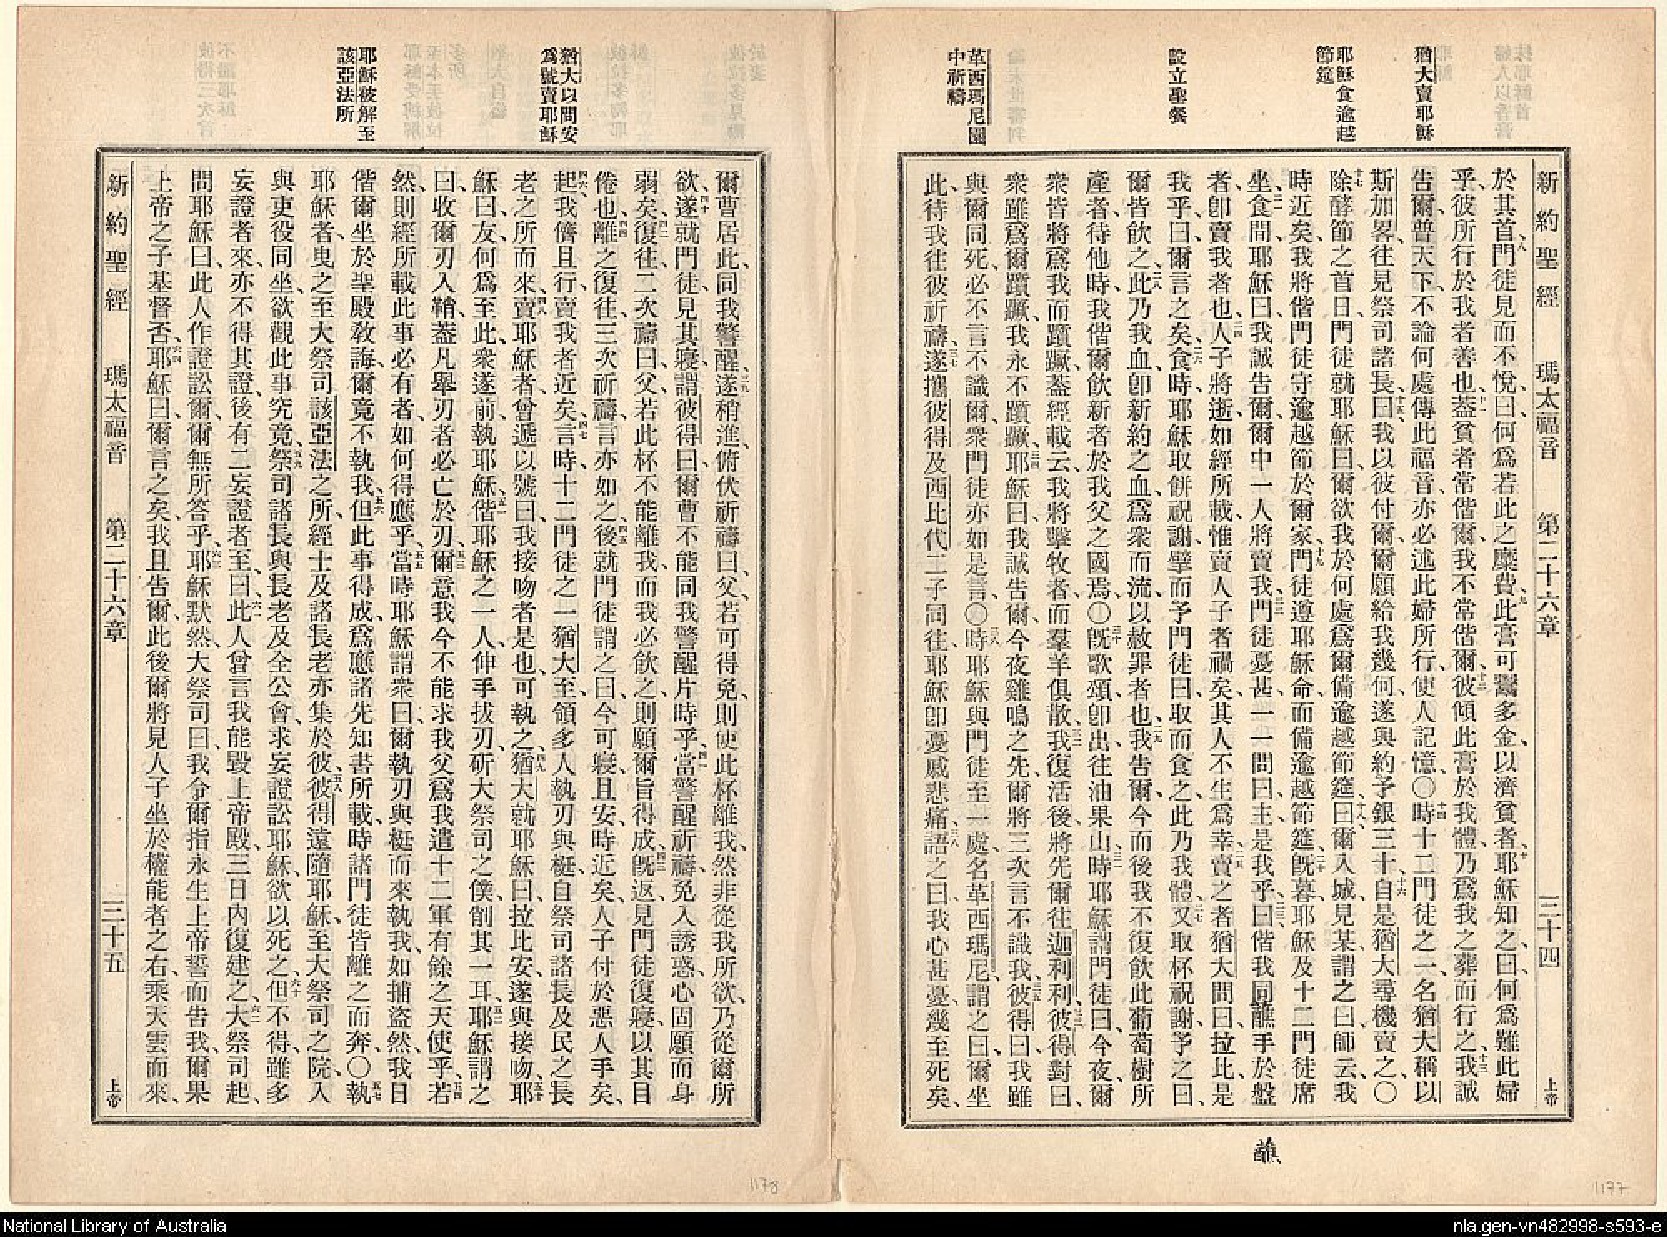 猶大賣耶穌
耶穌食逾越
節筵
設立聖餐
革西瑪尼園
中祈禱
新約聖經 瑪太福音 第二十六章 三十四 上帝
於其首、門徒見而不悅曰、何爲若此之糜費、此膏可鬻多金、以濟貧者、耶穌知之曰、何爲難此婦
乎、彼所行於我者善也、蓋貧者常偕爾、我不常偕爾、彼傾此膏於我體、乃爲我之葬而行之、我誠
告爾、普天下不論何處傳此福音、亦必述此婦所行、使人記憶○時十二門徒之一、名猶大稱以
斯加畧、往見祭司諸長曰、我以彼付爾、爾願給我幾何、遂與約予銀三十、自是猶大尋機賣之○
除酵節之首日、門徒就耶穌曰、爾欲我於何處爲爾備逾越節筵、曰、爾入城見某、謂之曰、師云、我
時近矣、我將偕門徒守逾越節於爾家、門徒遵耶穌命、而備逾越節筵、旣暮、耶穌及十二門徒席
坐、食間、耶穌曰、我誠告爾、爾中一人將賣我、門徒憂甚、一一問曰、主、是我乎、曰、偕我同蘸手於盤
者、卽賣我者也、人子將逝、如經所載、惟賣人子者禍矣、其人不生爲幸、賣之者猶大問曰、拉比、是
我乎、曰、爾言之矣、食時、耶穌取餅祝謝、擘而予門徒曰、取而食之、此乃我體、又取杯祝謝、予之曰、
爾皆飲之、此乃我血、卽新約之血、爲衆而流、以赦罪者也、我告爾、今而後、我不復飲此葡萄樹所
產者、待他時、我偕爾飲新者於我父之國焉○旣歌頌、卽出、往油果山、時耶穌謂門徒曰、今夜爾
衆皆將爲我而躓蹶、蓋經載云、我將擊牧者、而羣羊俱散、我復活後、將先爾往迦利利、彼得對曰、
衆雖爲爾躓蹶、我永不躓蹶、耶穌曰、我誠告爾、今夜雞鳴之先、爾將三次言不識我、彼得曰、我雖
與爾同死、必不言不識爾、衆門徒亦如是言○時耶穌與門徒至一處、名革西瑪尼、謂之曰、爾坐
此、待我往彼祈禱、遂攜彼得及西比代二子同往、耶穌卽憂戚悲痛、語之曰、我心甚憂、幾至死矣、
蘸、
1177
猶大以問安
爲號賣耶穌
耶穌被解至
該亞法所
爾曹居此、同我警醒、遂稍進、俯伏祈禱曰、父、若可得免、則使此杯離我、然非從我所欲、乃從爾所
欲、遂就門徒、見其寢、謂彼得曰、爾曹不能同我警醒片時乎、當警醒祈禱、免入誘惑、心固願而身
弱矣、復往二次禱曰、父、若此杯不能離我、而我必飲之、則願爾旨得成、旣返、見門徒復寢、以其目
倦也、離之復往、三次祈禱、言亦如之、後就門徒、謂之曰、今可寢且安、時近矣、人子付於惡人手矣、
起、我儕且行、賣我者近矣、言時、十二門徒之一猶大至、領多人執刃與梃、自祭司諸長及民之長
老之所而來、賣耶穌者、曾遞以號曰、我接吻者是也、可執之、猶大就耶穌曰、拉比安、遂與接吻、耶
穌曰、友、何爲至此、衆遂前執耶穌、偕耶穌之一人、伸手拔刃、斫大祭司之僕、削其一耳、耶穌謂之
曰、收爾刃入鞘、蓋凡舉刃者必亡於刃、爾意我今不能求我父、爲我遣十二軍有餘之天使乎、若
然、則經所載此事必有者、如何得應乎、當時耶穌謂衆曰、爾執刃與梃而來執我、如捕盜然、我日
偕爾坐於聖殿敎誨、爾竟不執我、但此事得成、爲應諸先知書所載、時諸門徒皆離之而奔○執
耶穌者、曳之至大祭司該亞法之所、經士及諸長老亦集於彼、彼得遠隨耶穌、至大祭司之院、入
與吏役同坐、欲觀此事究竟、祭司諸長與長老及全公會、求妄證訟耶穌、欲以死之、但不得、雖多
妄證者來、亦不得其證、後有二妄證者至、曰、此人曾言我能毀上帝殿、三日內復建之、大祭司起、
問耶穌曰、此人作證訟爾、爾無所答乎、耶穌默然、大祭司曰、我令爾指永生上帝誓而告我、爾果
上帝之子基督否、耶穌曰、爾言之矣、我且告爾、此後爾將見人子坐於權能者之右、乘天雲而來、
新約聖經 瑪太福音 第二十六章 三十五 上帝
1178
National Library of Australia
nla.gen-vn482998-s593-e